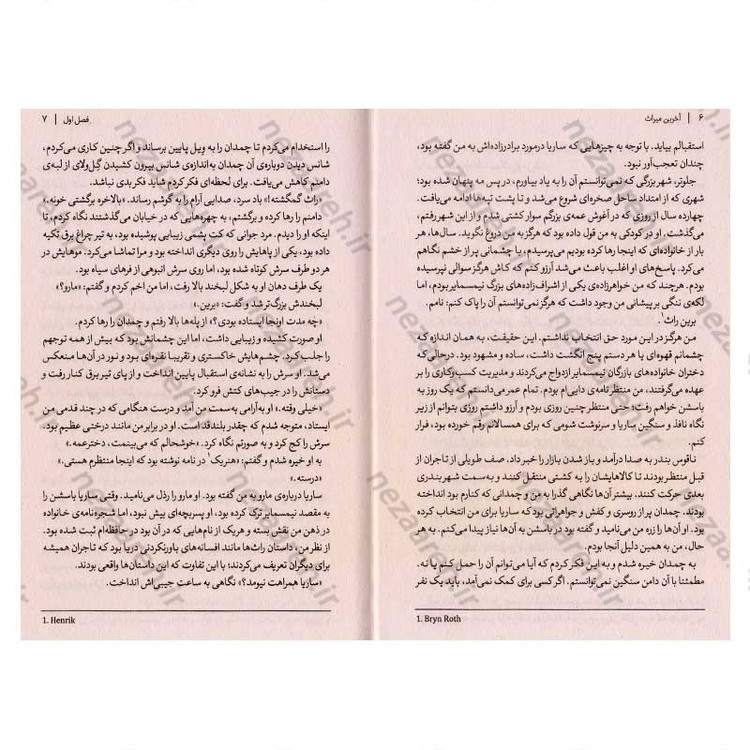 ۶ | آخرین میراث
استقبالم بیاید. با توجه به چیزهایی که ساریا درمورد برادرزاده‌اش به من گفته بود،
چندان تعجب‌آور نبود.
جلوتر، شهر بزرگی که نمی‌توانستم آن را به یاد بیاورم، در پس مه پنهان شده بود؛
شهری که از امتداد ساحل صخره‌ای شروع می‌شد و تا پشت تپه‌ها ادامه می‌یافت.
چهارده سال از روزی که در آغوش عمه‌ی بزرگم سوار کشتی شدم و از این شهر رفتم،
می‌گذشت. او در کودکی به من قول داده بود که هرگز به من دروغ نگوید. سال‌ها، هر
بار از خانواده‌ای که اینجا رها کرده بودیم می‌پرسیدم، با چشمانی پر از خشم نگاهم
می‌کرد. پاسخ‌های او اغلب باعث می‌شد آرزو کنم که کاش هرگز سوالی نپرسیده
بودم. هرچند که من خواهرزاده‌ی یکی از اشراف‌زاده‌های بزرگ نیمسمایر بودم، اما
لکه‌ی ننگی بر پیشانی من وجود داشت که هرگز نمی‌توانستم آن را پاک کنم: نامم.
برین راث۱.
من هرگز در این مورد حق انتخاب نداشتم. این حقیقت، به همان اندازه که
چشمانم قهوه‌ای یا هر دستم پنج انگشت داشت، ساده و مشهود بود. درحالی که
دختران خانواده‌های بازرگان نیمسمایر ازدواج می‌کردند و مدیریت کسب‌وکاری را بر
عهده می‌گرفتند، من منتظر نامه‌ی دایی‌ام بودم. تمام عمر می‌دانستم که یک روز به
باستین خواهم رفت؛ حتی منتظر چنین روزی بودم و آرزو داشتم روزی بتوانم از زیر
نگاه نافذ و سنگین ساریا و سرنوشت شومی که برای همسالانم رقم خورده بود، فرار
کنم.
ناقوس بندر به صدا درآمد و باز شدن بازار را خبر داد. صف طویلی از تاجران از
قبل منتظر بودند تا کالاهایشان را به کشتی منتقل کنند و به‌سمت شهر بندری
بعدی حرکت کنند. بیشتر آن‌ها نگاهی گذرا به من و چمدانی که کنارم بود انداخته
بودند. چمدان پر از روسری و کفش و جواهراتی بود که ساریا برای من انتخاب کرده
بود. او آن‌ها را زره من می‌نامید و گفته بود در باستین به آن‌ها نیاز پیدا می‌کنم. به هر
حال، من به همین دلیل آنجا بودم.
به چمدان خیره شدم و به این فکر کردم که آیا می‌توانم آن را حمل کنم یا نه.
مطمئنا با آن دامن سنگین نمی‌توانستم. اگر کسی برای کمک نمی‌آمد، باید یک نفر
1. Bryn Roth
فصل اول | ۷
را استخدام می‌کردم تا چمدان را به ویل پایین برساند و اگر چنین کاری می‌کردم،
شانس دیدن دوباره‌ی آن چمدان به‌اندازه‌ی شانس بیرون کشیدن گِل‌ولای از لبه‌ی
دامنم کاهش می‌یافت. برای لحظه‌ای فکر کردم شاید فکر بدی نباشد.
«راث گمگشته!» باد سرد، صدایی آرام را به گوشم رساند. «بالاخره برگشتی خونه.»
دامنم را رها کرده و برگشتم، به چهره‌هایی که در خیابان می‌گذشتند نگاه کردم، تا
اینکه او را دیدم. مرد جوانی که کت پشمی زیبایی پوشیده بود، به تیر چراغ برق تکیه
داده بود، یکی از پاهایش را روی دیگری انداخته بود و مرا تماشا می‌کرد. موهایش در
هر دو طرف سرش کوتاه شده بود، اما روی سرش انبوهی از فرهای سیاه بود.
یک طرف دهان او به شکل لبخند بالا رفت، اما من اخم کردم و گفتم: «مارو؟»
لبخندش بزرگ‌تر شد و گفت: «برین.»
«چه مدت اونجا ایستاده بودی؟» از پله‌ها بالا رفتم و چمدان را رها کردم.
او صورت کشیده و زیبایی داشت، اما این چشمانش بود که بیش از همه توجهم
را جلب کرد. چشم‌هایش خاکستری و تقریبا نقره‌ای بود و نور در آن‌ها منعکس
می‌شد. او سرش را به نشانه‌ی استقبال پایین انداخت و از پای تیر برق کنار رفت و
دستانش را در جیب‌های کتش فرو کرد.
«خیلی وقته.» او به‌آرامی به‌سمت من آمد و درست هنگامی که در چند قدمی من
ایستاد، متوجه شدم که چقدر بلندقد است. او در برابر من مانند درختی عظیم بود.
سرش را کج کرد و به صورتم نگاه کرد. «خوشحالم که می‌بینمت، دخترعمه.»
به او خیره شدم و گفتم: «هنریک۱ در نامه نوشته بود که اینجا منتظرم هستی.»
«درسته.»
ساریا درباره‌ی مارو به من گفته بود. او مارو را رذل می‌نامید. وقتی ساریا باستین را
به مقصد نیمسمایر ترک کرده بود، او پسربچه‌ای بیش نبود، اما شجره‌نامه‌ی خانواده
در ذهن من نقش بسته و هریک از نام‌هایی که در آن بود در حافظه‌ام ثبت شده بود.
از نظر من، داستان راث‌ها مانند افسانه‌های باورنکردنی دریا بود که تاجران همیشه
برای دیگران تعریف می‌کردند؛ با این تفاوت که این داستان‌ها واقعی بودند.
«ساریا همراهت نیومد؟» نگاهی به ساعت جیبی‌اش انداخت.
1. Henrik
nezareh.ir